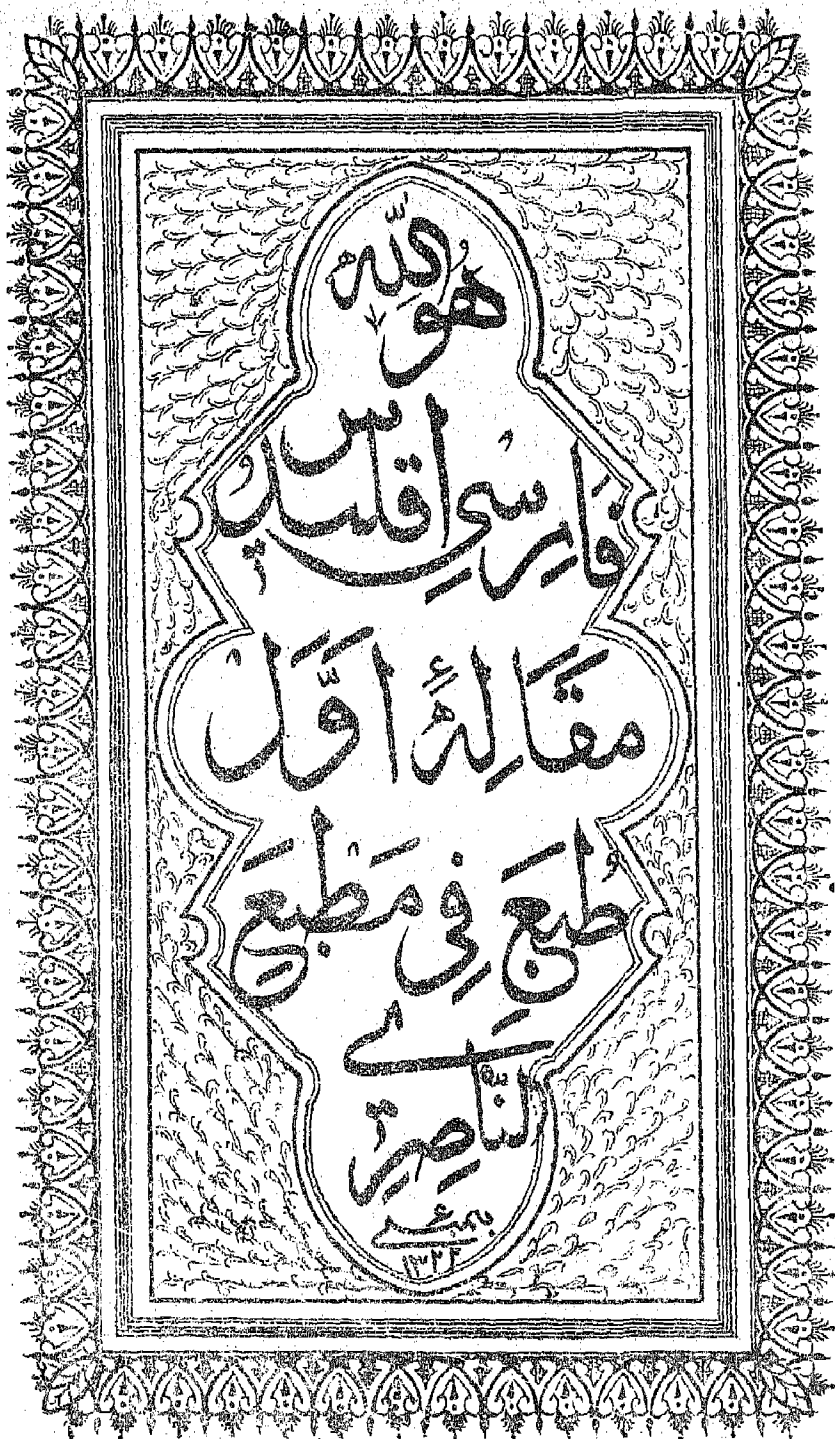 هُوَ اللّٰه
فَارِسیِ اقلیدس
مَقَالَهٔ اَوَّل
طُبِعَ فِي مَطْبَعِ
النَّاصِرِي
بمبئی
۱۳۲۲